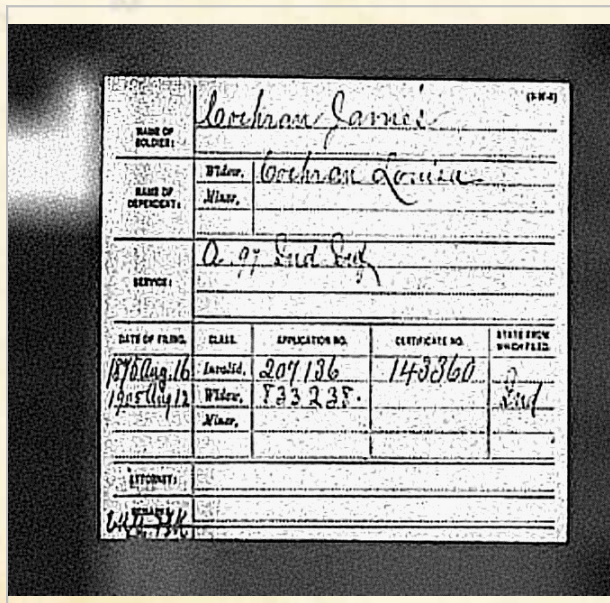 (3-M-4)
NAME OF SOLDIER: Cochran James
NAME OF DEPENDENT: Widow, Cochran Louisa
Minor,
SERVICE: A. 97 Ind Inf
DATE OF FILING. CLASS. APPLICATION NO. CERTIFICATE NO. STATE FROM WHICH FILED.
1875 Aug. 16 Invalid, 207136 143360
1905 Aug 12 Widow, 833238. Ind
Minor,
ATTORNEY:
REMARKS: